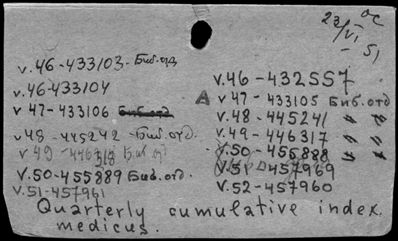 23/VI 51 ОС
v.46-433103-Биб.отд
v.46-433104
v 47-433106 Биб.отд
v 48-445242-Биб.отд.
v 49-446318 Биб.от
V.50-455889 Биб.отд.
V.51-457961
v.46-432557
A v 47-433105 Биб.отд
v.48-445241 " "
v.49-446317 " "
v.50-455888 " "
v.51-457969
v.52-457960
Quarterly cumulative index.
medicus.